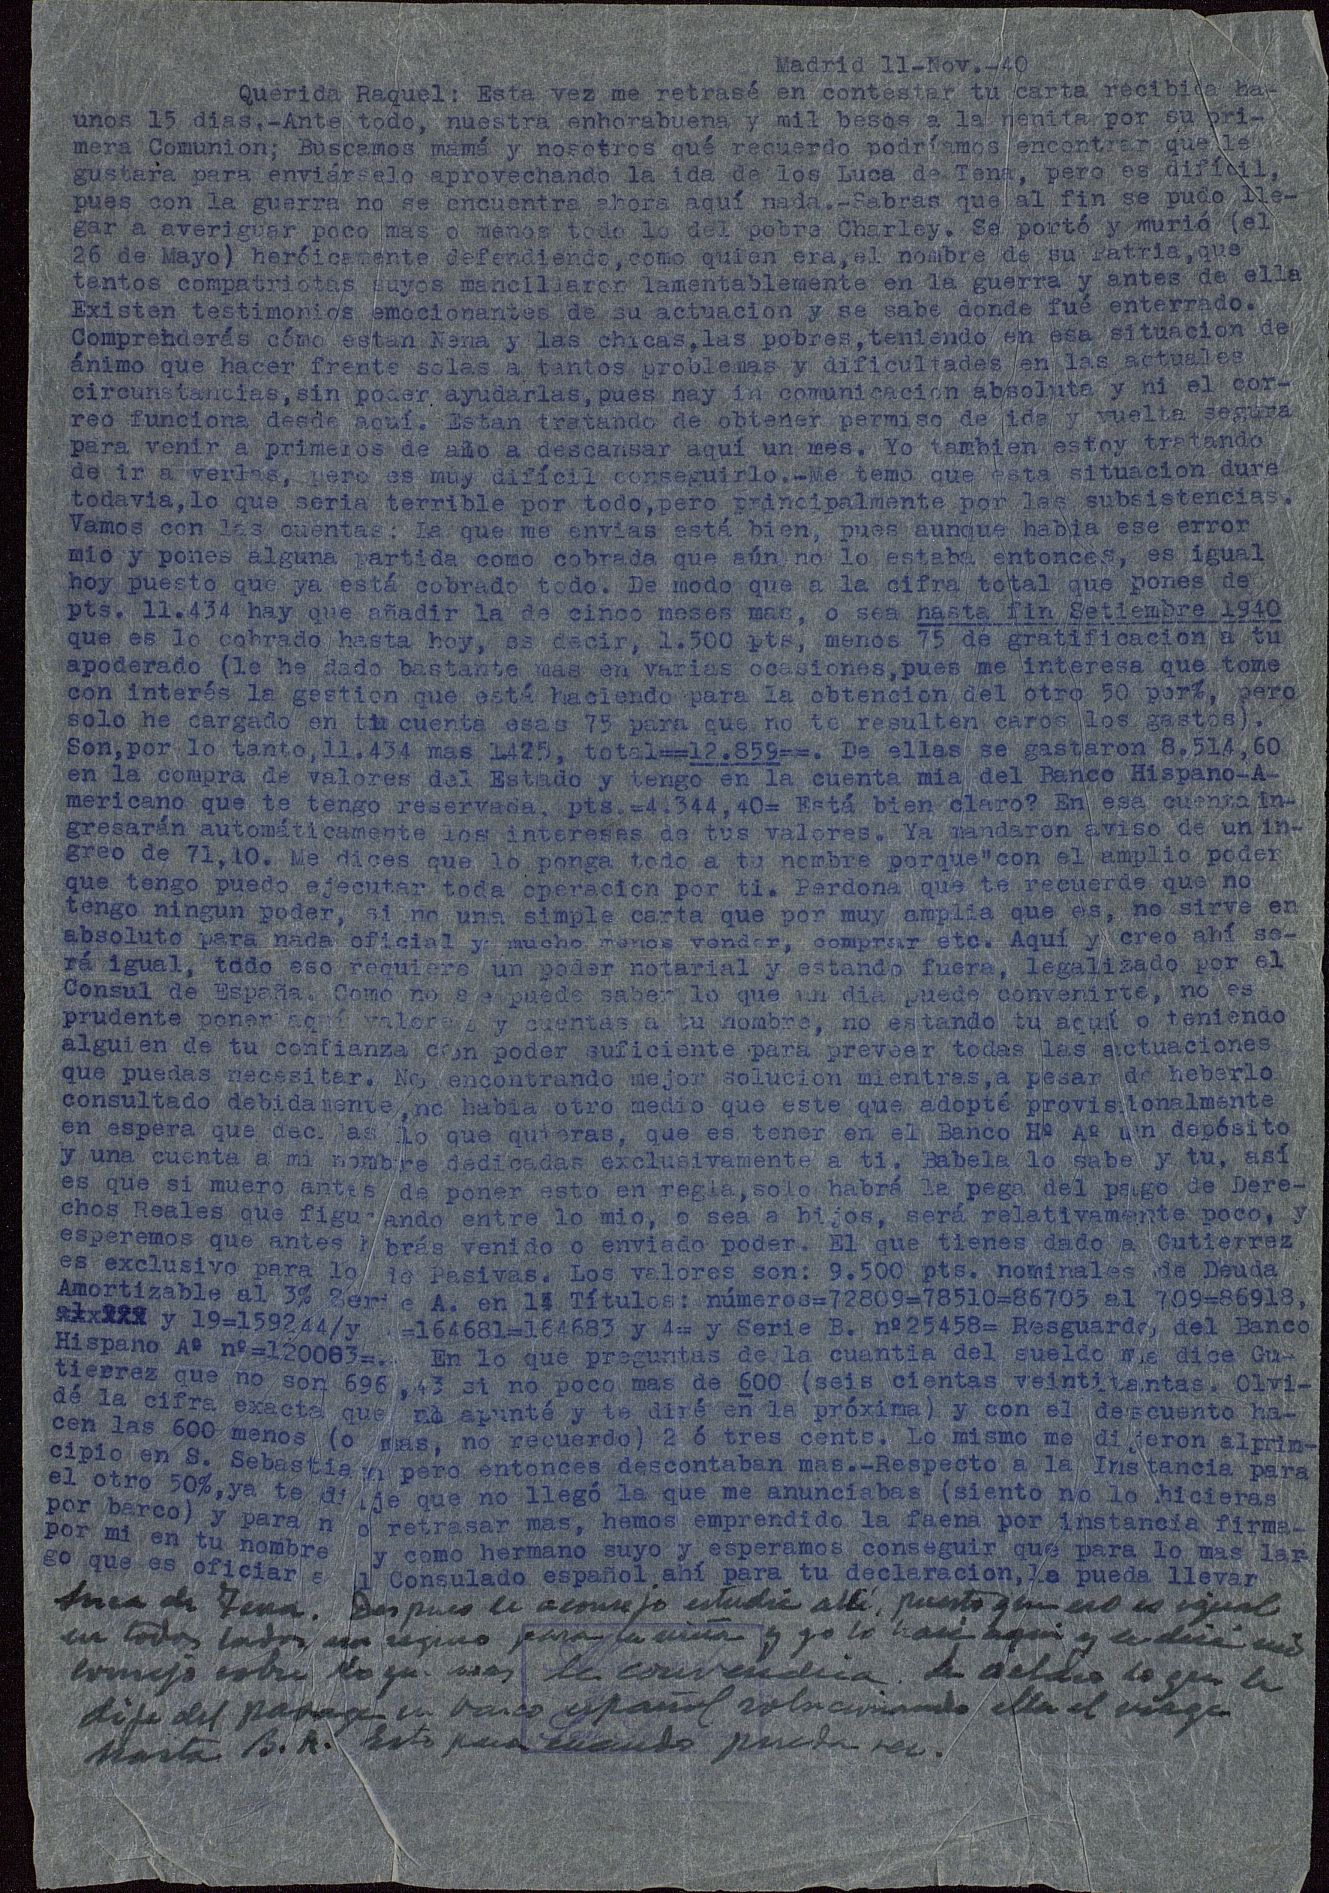 Madrid 11-Nov.-40
Querida Raquel: Esta vez me retrasé en contestar tu carta recibida ha-
unos 15 dias.-Ante todo, nuestra enhorabuena y mil besos a la nenita por su pri-
mera Comunion; Buscamos mamá y nosotros qué recuerdo podríamos encontrar que le
gustara para enviárselo aprovechando la ida de los Luca de Tena, pero es difícil,
pues con la guerra no se encuentra ahora aquí nada.-Sabras que al fin se pudo lle-
gar a averiguar poco mas o menos todo lo del pobre Charley. Se portó y murió (el
26 de Mayo) heróicamente defendiendo,como quien era,el nombre de su Patria,que
tantos compatriotas suyos mancillaron lamentablemente en la guerra y antes de ella
Existen testimonios emocionantes de su actuacion y se sabe donde fué enterrado.
Comprenderás cómo estan Nena y las chicas,las pobres,teniendo en esa situacion de
ánimo que hacer frente solas a tantos problemas y dificultades en las actuales
circunstancias,sin poder ayudarlas,pues hay in comunicacion absoluta y ni el cor-
reo funciona desde aquí. Estan tratando de obtener permiso de ida y vuelta segura
para venir a primeros de año a descansar aquí un mes. Yo tambien estoy tratando
de ir a verlas, pero es muy difícil conseguirlo.-Me temo que esta situacion dure
todavia,lo que seria terrible por todo,pero principalmente por las subsistencias.
Vamos con las cuentas: La que me envias está bien, pues aunque habia ese error
mio y pones alguna partida como cobrada que aún no lo estaba entonces, es igual
hoy puesto que ya está cobrado todo. De modo que a la cifra total que pones de
pts. 11.434 hay que añadir la de cinco meses mas, o sea hasta fin Setiembre 1940
que es lo cobrado hasta hoy, es decir, 1.500 pts, menos 75 de gratificacion a tu
apoderado (le he dado bastante mas en varias ocasiones,pues me interesa que tome
con interés la gestion que está haciendo para la obtencion del otro 50 por%, pero
solo he cargado en tu cuenta esas 75 para que no te resulten caros los gastos).
Son,por lo tanto,11.434 mas 1425, total==12.859==. De ellas se gastaron 8.514,60
en la compra de valores del Estado y tengo en la cuenta mia del Banco Hispano-A-
mericano que te tengo reservada, pts.=4.344,40= Está bien claro? En esa cuenta in-
gresarán automáticamente los intereses de tus valores. Ya mandaron aviso de un in-
greo de 71,10. Me dices que lo ponga todo a tu nombre porque"con el amplio poder
que tengo puedo ejecutar toda operacion por ti. Perdona que te recuerde que no
tengo ningun poder, si no una simple carta que por muy amplia que es, no sirve en
absoluto para nada oficial y mucho menos vender, comprar etc. Aquí y creo ahí se-
rá igual, todo eso requiere un poder notarial y estando fuera, legalizado por el
Consul de España. Como no se puede saber lo que un dia puede convenirte, no es
prudente poner aquí valores y cuentas a tu nombre, no estando tu aquí o teniendo
alguien de tu confianza con poder suficiente para preveer todas las actuaciones
que puedas necesitar. No encontrando mejor solucion mientras,a pesar de heberlo
consultado debidamente,no habia otro medio que este que adopté provisionalmente
en espera que decidas lo que quieras, que es tener en el Banco Hº Aº un depósito
y una cuenta a mi nombre dedicadas exclusivamente a ti. Babela lo sabe y tu, así
es que si muero antes de poner esto en regla,solo habrá la pega del pago de Dere-
chos Reales que figurando entre lo mio, o sea a hijos, será relativamente poco, y
esperemos que antes habrás venido o enviado poder. El que tienes dado a Gutierrez
es exclusivo para lo de Pasivas. Los valores son: 9.500 pts. nominales de Deuda
Amortizable al 3% Serie A. en 14 Títulos: números=72809=78510=86705 al 709=86918,
y 19=159244/y =164681=164683 y 4= y Serie B. nº25458= Resguardo, del Banco
Hispano Aº nº=120083=. En lo que preguntas de la cuantia del sueldo me dice Gu-
tierrez que no son 696,43 si no poco mas de 600 (seis cientas veintitantas. Olvi-
dé la cifra exacta que no apunté y te diré en la próxima) y con el descuento ha-
cen las 600 menos (o mas, no recuerdo) 2 ó tres cents. Lo mismo me dijeron alprin-
cipio en S. Sebastian pero entonces descontaban mas.-Respecto a la Instancia para
el otro 50%,ya te dije que no llegó la que me anunciabas (siento no lo hicieras
por barco) y para no retrasar mas, hemos emprendido la faena por instancia firma-
por mi en tu nombre y como hermano suyo y esperamos conseguir que para lo mas lar
go que es oficiar al Consulado español ahí para tu declaracion,la pueda llevar
Luca de Tena. Despues te aconsejo estudie allí, puesto que no es igual
en todos lados, un seguro para la niña y yo lo haré aqui y te diré mi
consejo sobre lo que mas le convendria. Te detallo lo que le
dije del pasage en barco español solucionando ella el viaje
hasta B.A. Esto para cuando pueda ser.